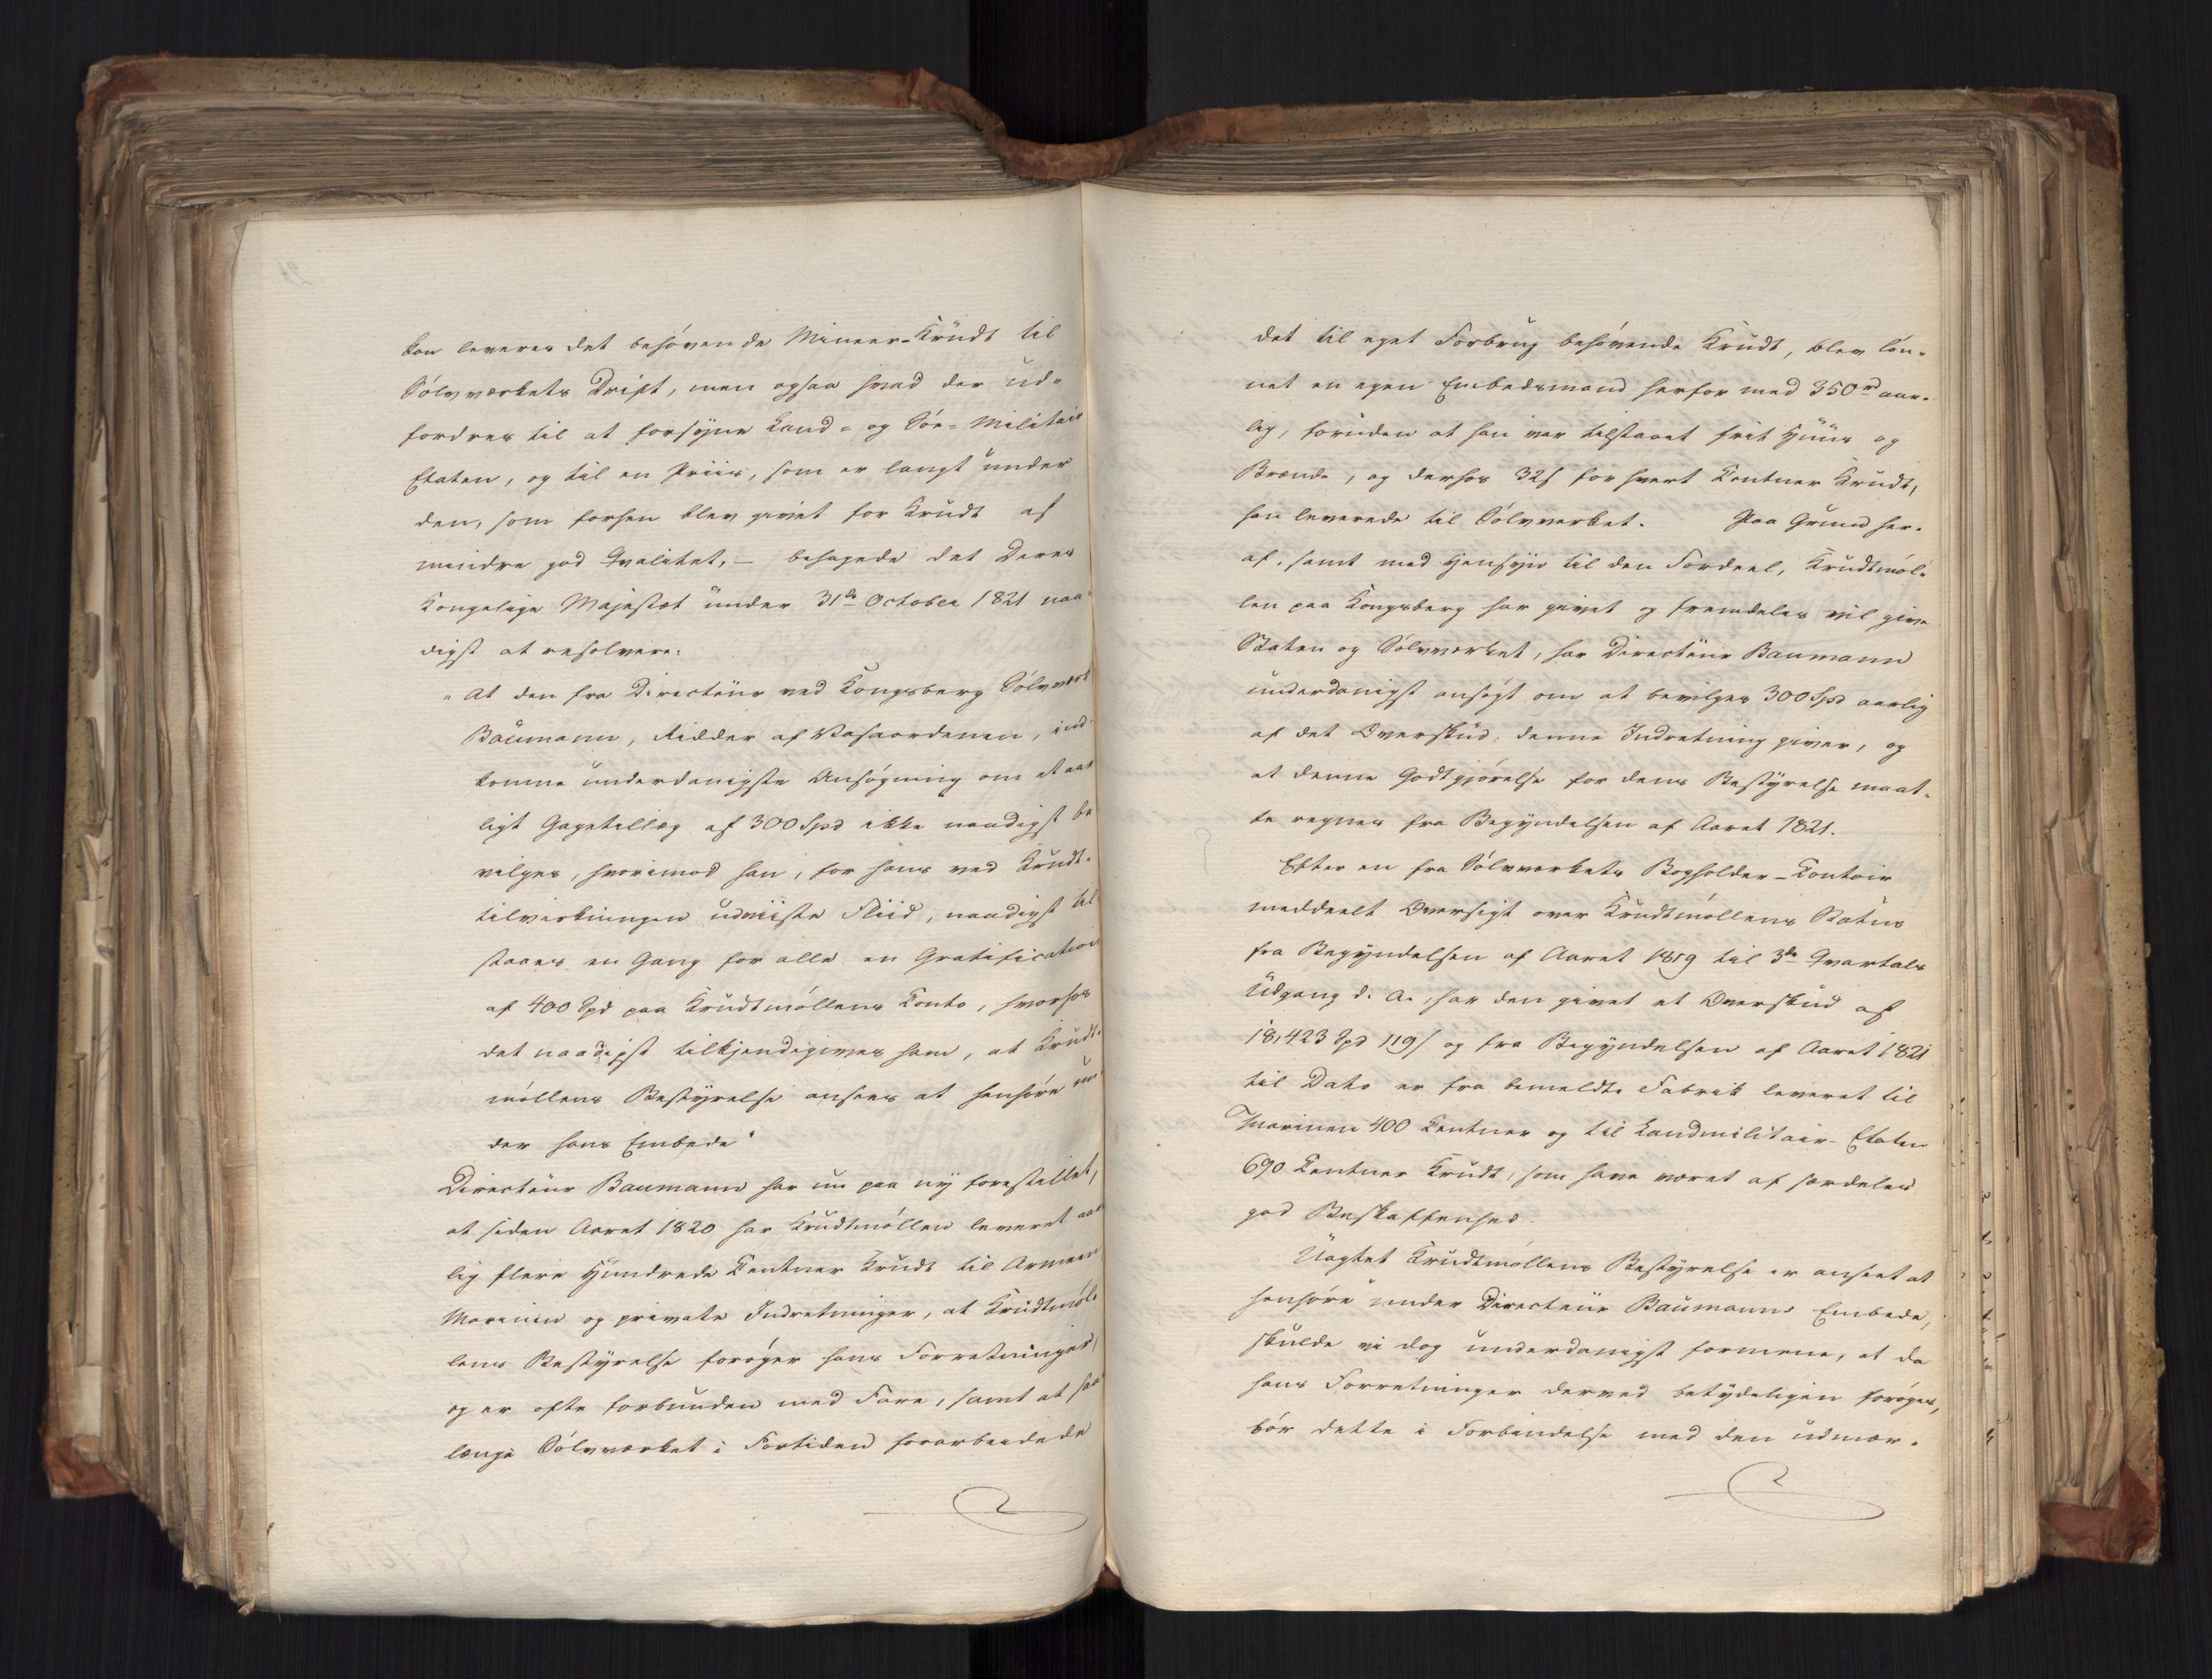 kan leveres det behövende Mineer-Krudt til
Sölvværkets Drift, men ogsaa hvad der ud-
fordres til at forsyne Land- og Söe-Militair
Etaten, og til en Priis, som er langt under
den, som forhen blev givet for Krudt af
mindre god Qvalitet, – behagede det Deres
Kongelige Majestæt under 31de October 1821 naa-
digst at resolvere:
"At den fra Directeur ved Kongsberg Sölvværk
Baumann, Ridder af Vasaordenen, ind-
komne underdanigste Ansögning om et aar
ligt Gagetillæg af 300 Spd ikke naadigst be
vilges, hvorimod han, for hans ved Krudt-
tilvirkningen udviiste Fliid, naadigst til-
staaes en Gang for alle en Gratification
af 400 Spd paa Krudtmöllens Conto, hvorhos
det naadigst tilkjendegives ham, at Krudt-
möllens Bestyrelse ansees at henhöre un-
der hans Embede"
Directeur Baumann har nu paa ny forestillet,
at siden Aaret 1820 har Krudtmöllen leveret aar
lig flere Hundrede Centner Krudt til Armeen
Marinen og private Indretninger, at Krudtmöl-
lens Bestyrelse foröger hans Forretninger,
og er ofte forbunden med Fare, samt at saa
længe Sölvværket i Fortiden forarbeidede
det til eget Forbrug behövende Krudt, blev lön-
net en egen Embedsmand herfor med 350 rd aar-
lig, foruden at han var tilstaaet frit Huus og
Brænde, og derhos 32 s for hvert Centner Krudt,
han leverede til Sölvværket. Paa Grund her-
af, samt med Hensyn til den Fordeel, Krudtmöl-
len paa Kongsberg har givet og fremdeles vil give
Staten og Sölvværket, har Directeur Baumann
underdanigst ansögt om at bevilges 300 Spd aarlig
af det Overskud, denne Indretning giver, og
at denne Godtgjörelse for dens Bestyrelse maat-
te regnes fra Begyndelsen af Aaret 1821.
Efter en fra Sölvværkets Bogholder-Contoir
meddeelt Oversigt over Krudtmöllens Status
fra Begyndelsen af Aaret 1819 til 3de Qvartals
Udgang d. A., har den givet et Overskud af
18,423 Spd 119 s og fra Begyndelsen af Aaret 1821
til Dato er fra bemeldte Fabrik leveret til
Marinen 400 Centner og til Landmilitair-Etaten
690 Centner Krudt, som have været af særdeles
god Beskaffenhed.
Uagtet Krudtmöllens Bestyrelse er anseet at
henhöre under Directeur Baumanns Embede,
skulde vi dog underdanigst formene, at da
hans Forretninger derved betydeligen foröges,
bör dette i Forbindelse med den udmær-